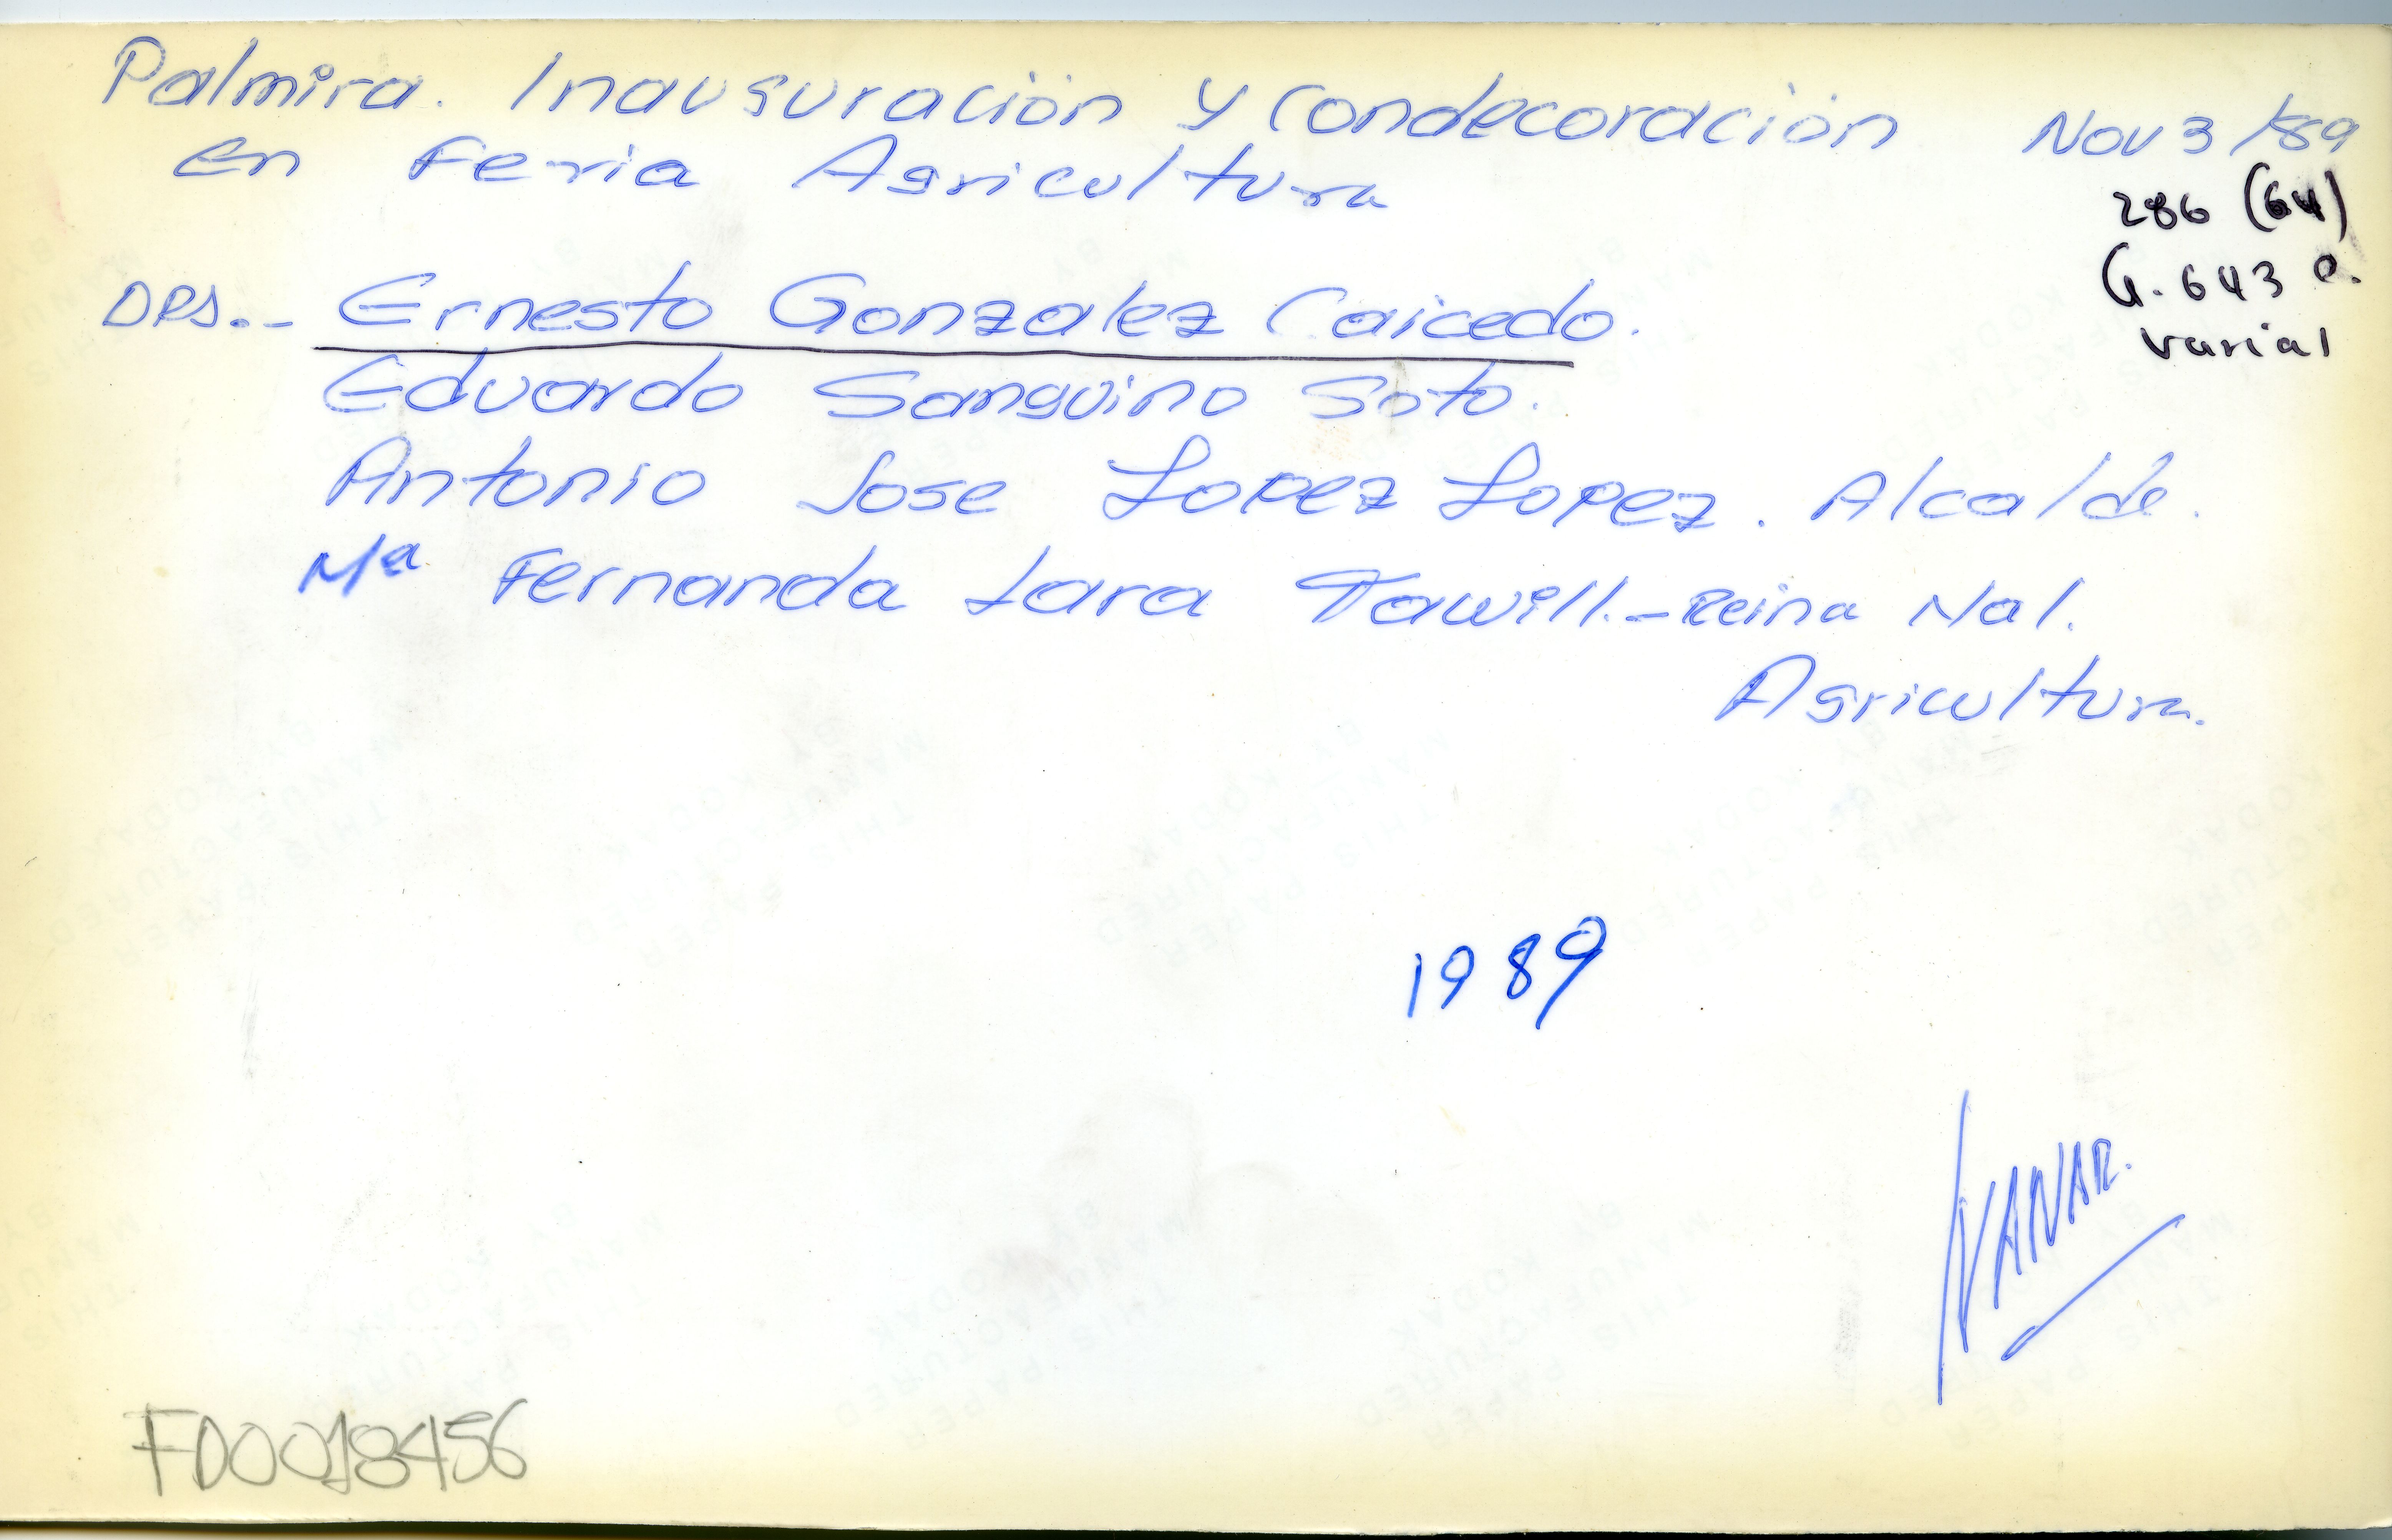 Palmira. Inauguración y Condecoración Nov 3/89
en Feria Agricultura
286 (64)
G. 643 e.
varial
DPS.- Ernesto Gonzalez Caicedo.
Eduardo Sanguino Soto.
Antonio Jose Lopez Lopez. Alcalde.
Mª Fernanda Lara Tawill.- Reina Nal.
Agricultura.
1989
IVANAR.
FD0018456
THIS PAPER
MANUFACTURED
BY KODAK